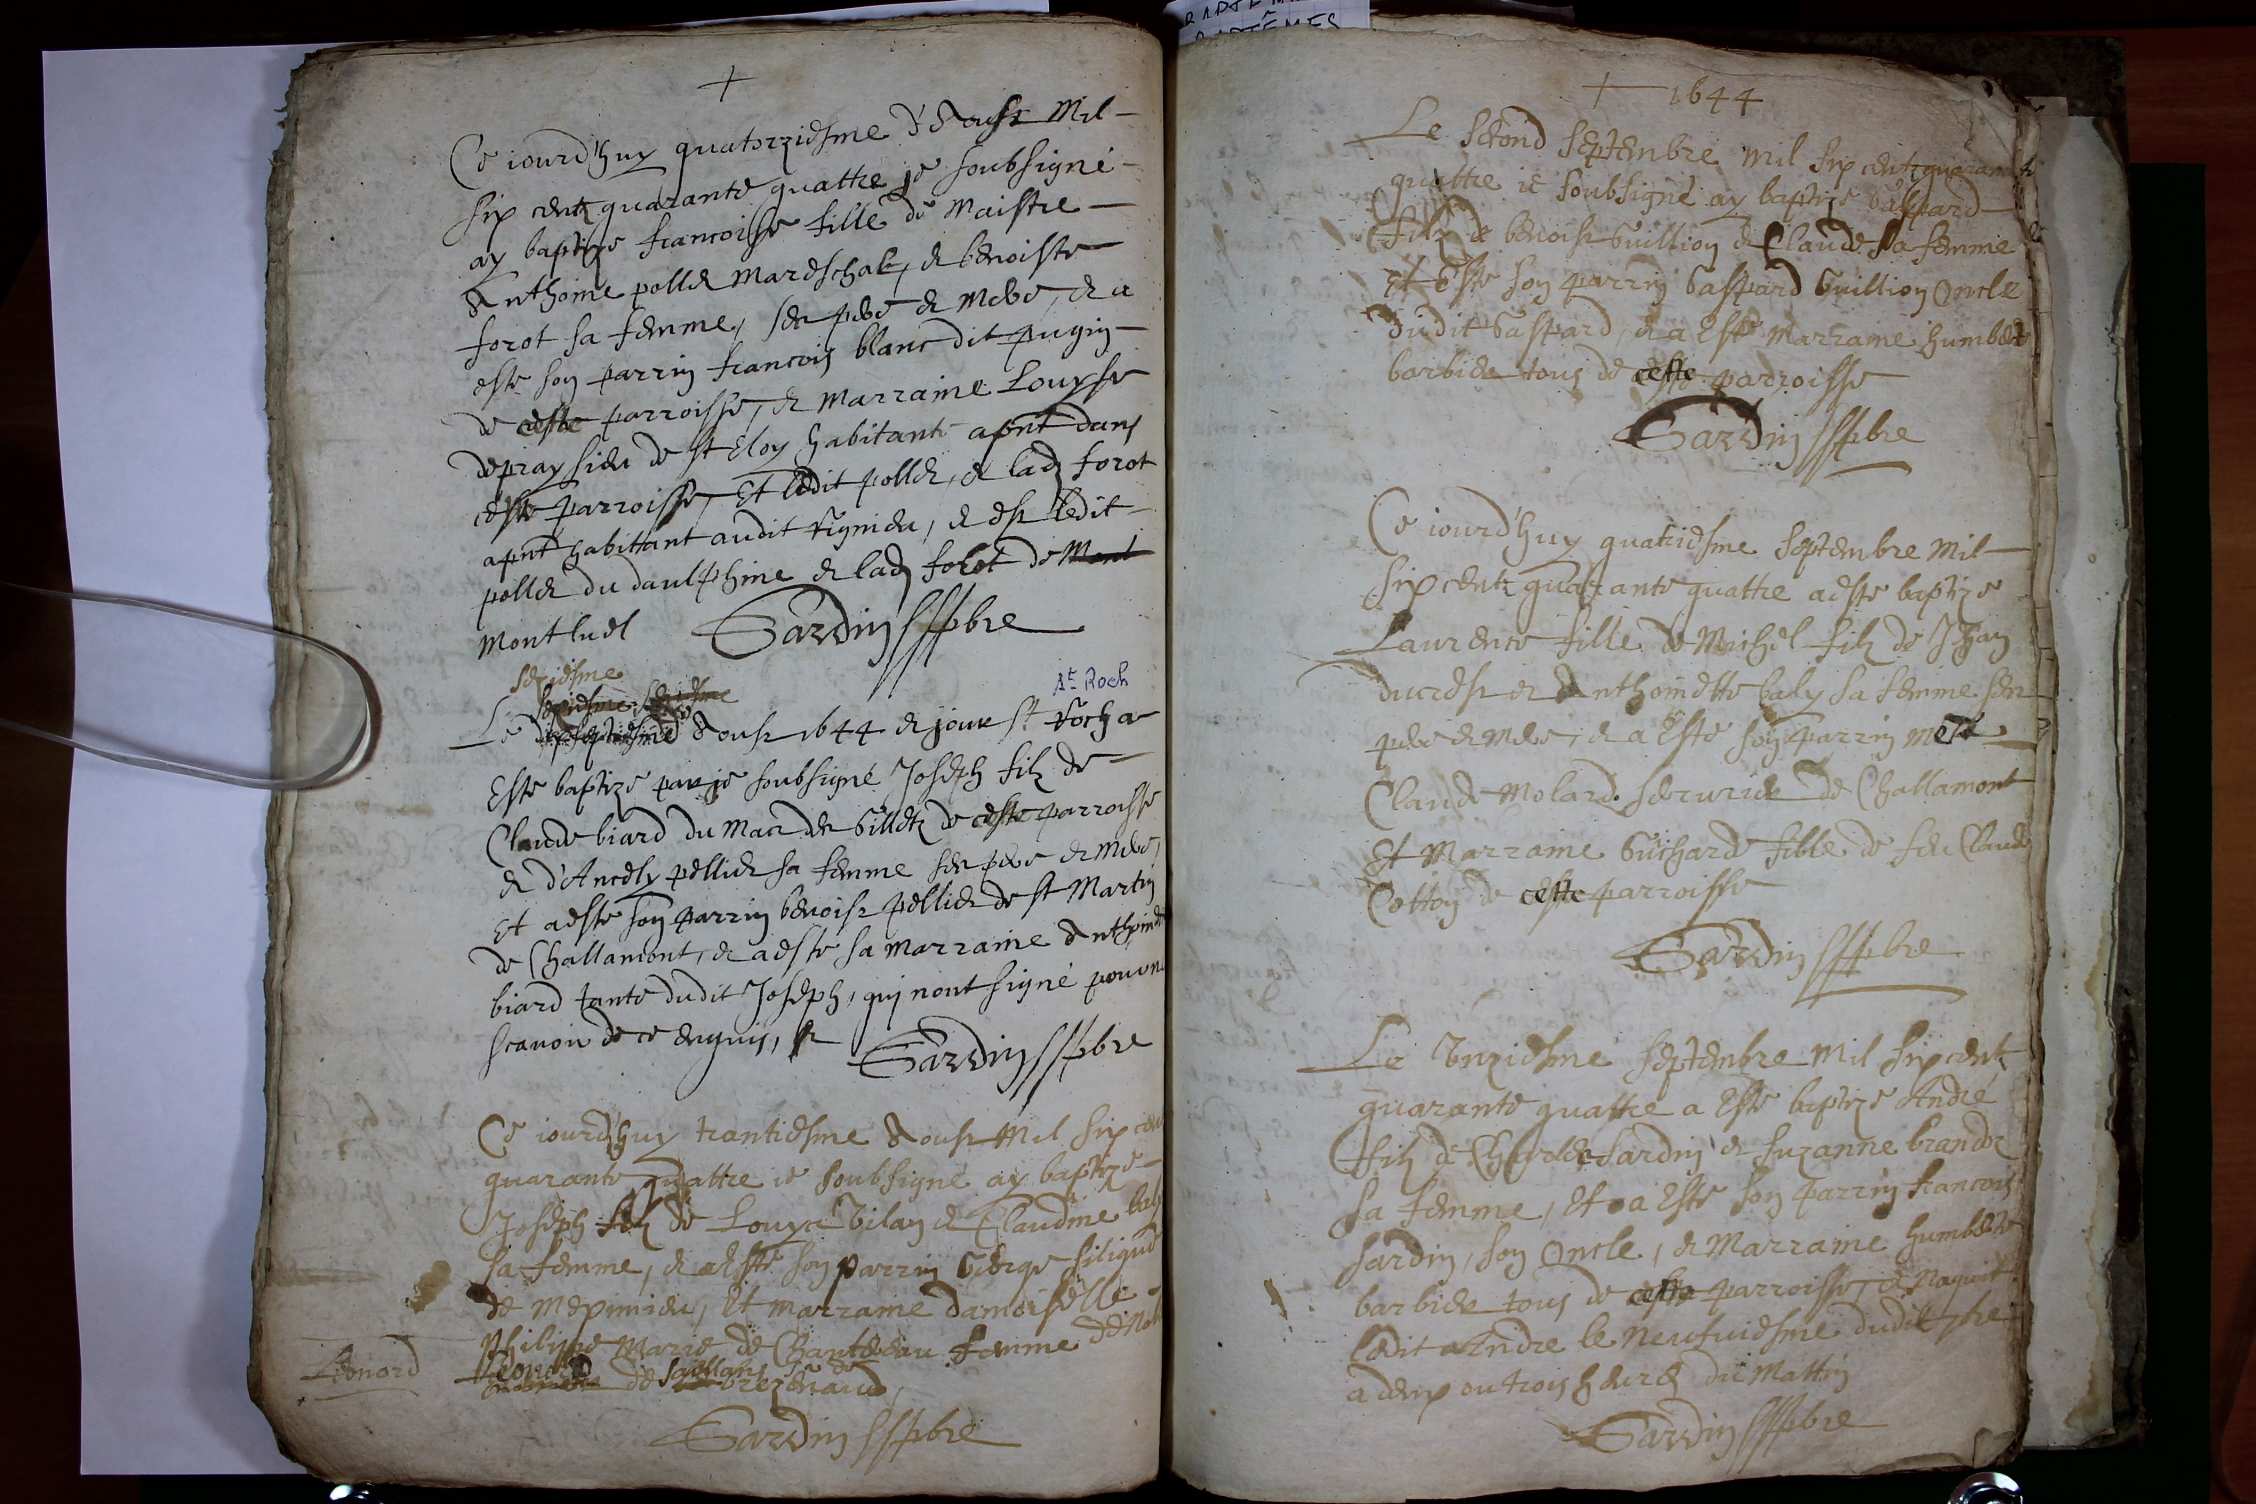 BAPTÊMES
Ce iourd'huy quatorziesme d'Aoust Mil
six centz quarante quattre je soubsigné
ay baptize francoise fille de Maistre
Anthoine pollet Mareschal, et benoiste
forot sa femme, ses pere et Mere, et a
este son parrin francois blanc dit pugin
de ceste parroisse, et Marraine Louyse
depray sieu de st Eloy habitantz apnt dans
ceste parroisse, Et ledit pollet, et lad forot
apnt habittant audit vignieu, et est ledit
pollet du daulphine et lad forot de Mont
Montluel Sardin pbre
seziesme
Le Aoust 1644 et jour st Roch a
St Roch
Este baptizé par je soubsigné Joseph filz de
Claude biard du Mas des Gilletz de ceste parroisse
et d'Ancely pellier sa femme ses pere et Mere,
Et aeste son parrin benoist pellier de st Martin
de Challamont, et aeste sa Marraine Anthoine
biard tante dudit Joseph, qui nont signé pour ne
scavoir de ce enquis, Sardin pbre
Ce iourd'huy trantiesme Aoust Mil six cen
quarante quattre ie soubsigné ay baptize
Joseph filz de Louys Vilan et Claudine baly
sa femme, et aeste son parrin George
de Mepinieu, Et marraine damoiselle
Philippe Marie de Chanteleau femme de Nob
Leonord
Leonord de
Sardin pbre
1644
Le second Septembre mil six centz quarante
quattre ie soubsigné ay baptize Gaspard
filz de benoist Guillion et Claude sa femme
Et Este son parrin Gaspard Guillion Oncle
dudit Gaspard, et a Este Marraine humberte
barbier tous de ceste parroisse
Sardin pbre
Ce iourd'huy quatriesme Septembre Mil
six centz quarante quattre aeste baptize
Laurence fille de Michel filz de Jehan
ducrest et Anthoinette baly sa femme ses
pere et mere, et a Este son parrin me
Claude Molard serrurier de Challamont
Et Marraine Guicharde fille de feu Claude
Cotton de ceste parroisse
Sardin pbre
Le Unziesme Septembre Mil six centz
quarante quattre a Este baptize André
filz de Charles Sardin et Suzanne brandet
sa femme, Et a Este son parrin francois
sardin, son Oncle, et Marraine humberte
barbier tous de ceste parroisse, et Naquit
ledit Andre le Neufuiesme dudit 7bre
a deux ou trois heures du Mattin
Sardin pbre